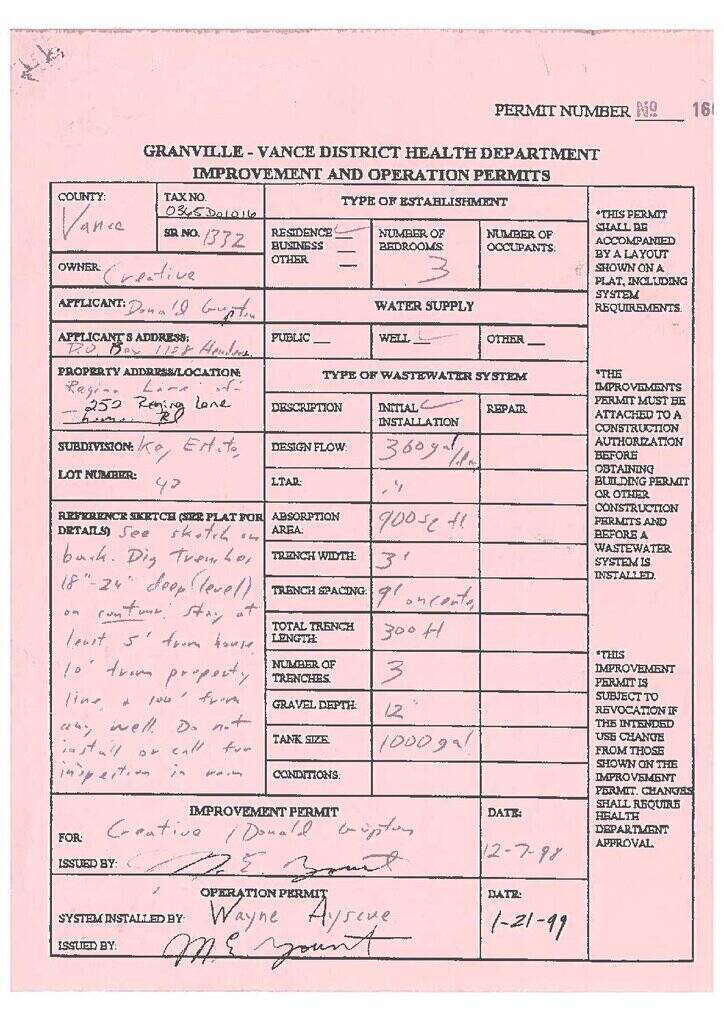 PERMIT NUMBER № 16
GRANVILLE - VANCE DISTRICT HEALTH DEPARTMENT
IMPROVEMENT AND OPERATION PERMITS
COUNTY:
Vance
TAX NO.
0365D01016
SR NO. 1332
OWNER: Creative
APPLICANT: Donald Gupton
APPLICANT'S ADDRESS:
P.O Box 1128 Henders.
PROPERTY ADDRESS/LOCATION:
Regina Lane off
252 Regina Lane
Rd
SUBDIVISION:
LOT NUMBER:
42
REFERENCE SKETCH (SEE PLAT FOR
DETAILS) see sketch on
back. Dig trenches
18"-24" deep (level)
on contour. Stay at
least 5' from house
10' from property
line, & 100' from
any well. Do not
install or call for
inspection in rain
TYPE OF ESTABLISHMENT
RESIDENCE ✓
BUSINESS __
OTHER __
NUMBER OF
BEDROOMS:
3
NUMBER OF
OCCUPANTS:
WATER SUPPLY
PUBLIC __ WELL ✓ OTHER __
TYPE OF WASTEWATER SYSTEM
DESCRIPTION INITIAL ✓
INSTALLATION REPAIR
DESIGN FLOW: 360 gal/day
LTAR: .4
ABSORPTION
AREA: 900 sq ft
TRENCH WIDTH: 3'
TRENCH SPACING: 9' on center
TOTAL TRENCH
LENGTH: 300 ft
NUMBER OF
TRENCHES: 3
GRAVEL DEPTH: 12"
TANK SIZE: 1000 gal
CONDITIONS:
*THIS PERMIT
SHALL BE
ACCOMPANIED
BY A LAYOUT
SHOWN ON A
PLAT, INCLUDING
SYSTEM
REQUIREMENTS.
*THE
IMPROVEMENTS
PERMIT MUST BE
ATTACHED TO A
CONSTRUCTION
AUTHORIZATION
BEFORE
OBTAINING
BUILDING PERMIT
OR OTHER
CONSTRUCTION
PERMITS AND
BEFORE A
WASTEWATER
SYSTEM IS
INSTALLED.
*THIS
IMPROVEMENT
PERMIT IS
SUBJECT TO
REVOCATION IF
THE INTENDED
USE CHANGE
FROM THOSE
SHOWN ON THE
IMPROVEMENT
PERMIT. CHANGES
SHALL REQUIRE
HEALTH
DEPARTMENT
APPROVAL.
IMPROVEMENT PERMIT
FOR: Creative / Donald Gupton
ISSUED BY: M. E. Yount
DATE:
12-7-98
OPERATION PERMIT
SYSTEM INSTALLED BY: Wayne Ayscue
ISSUED BY: M. E. Yount
DATE:
1-21-99